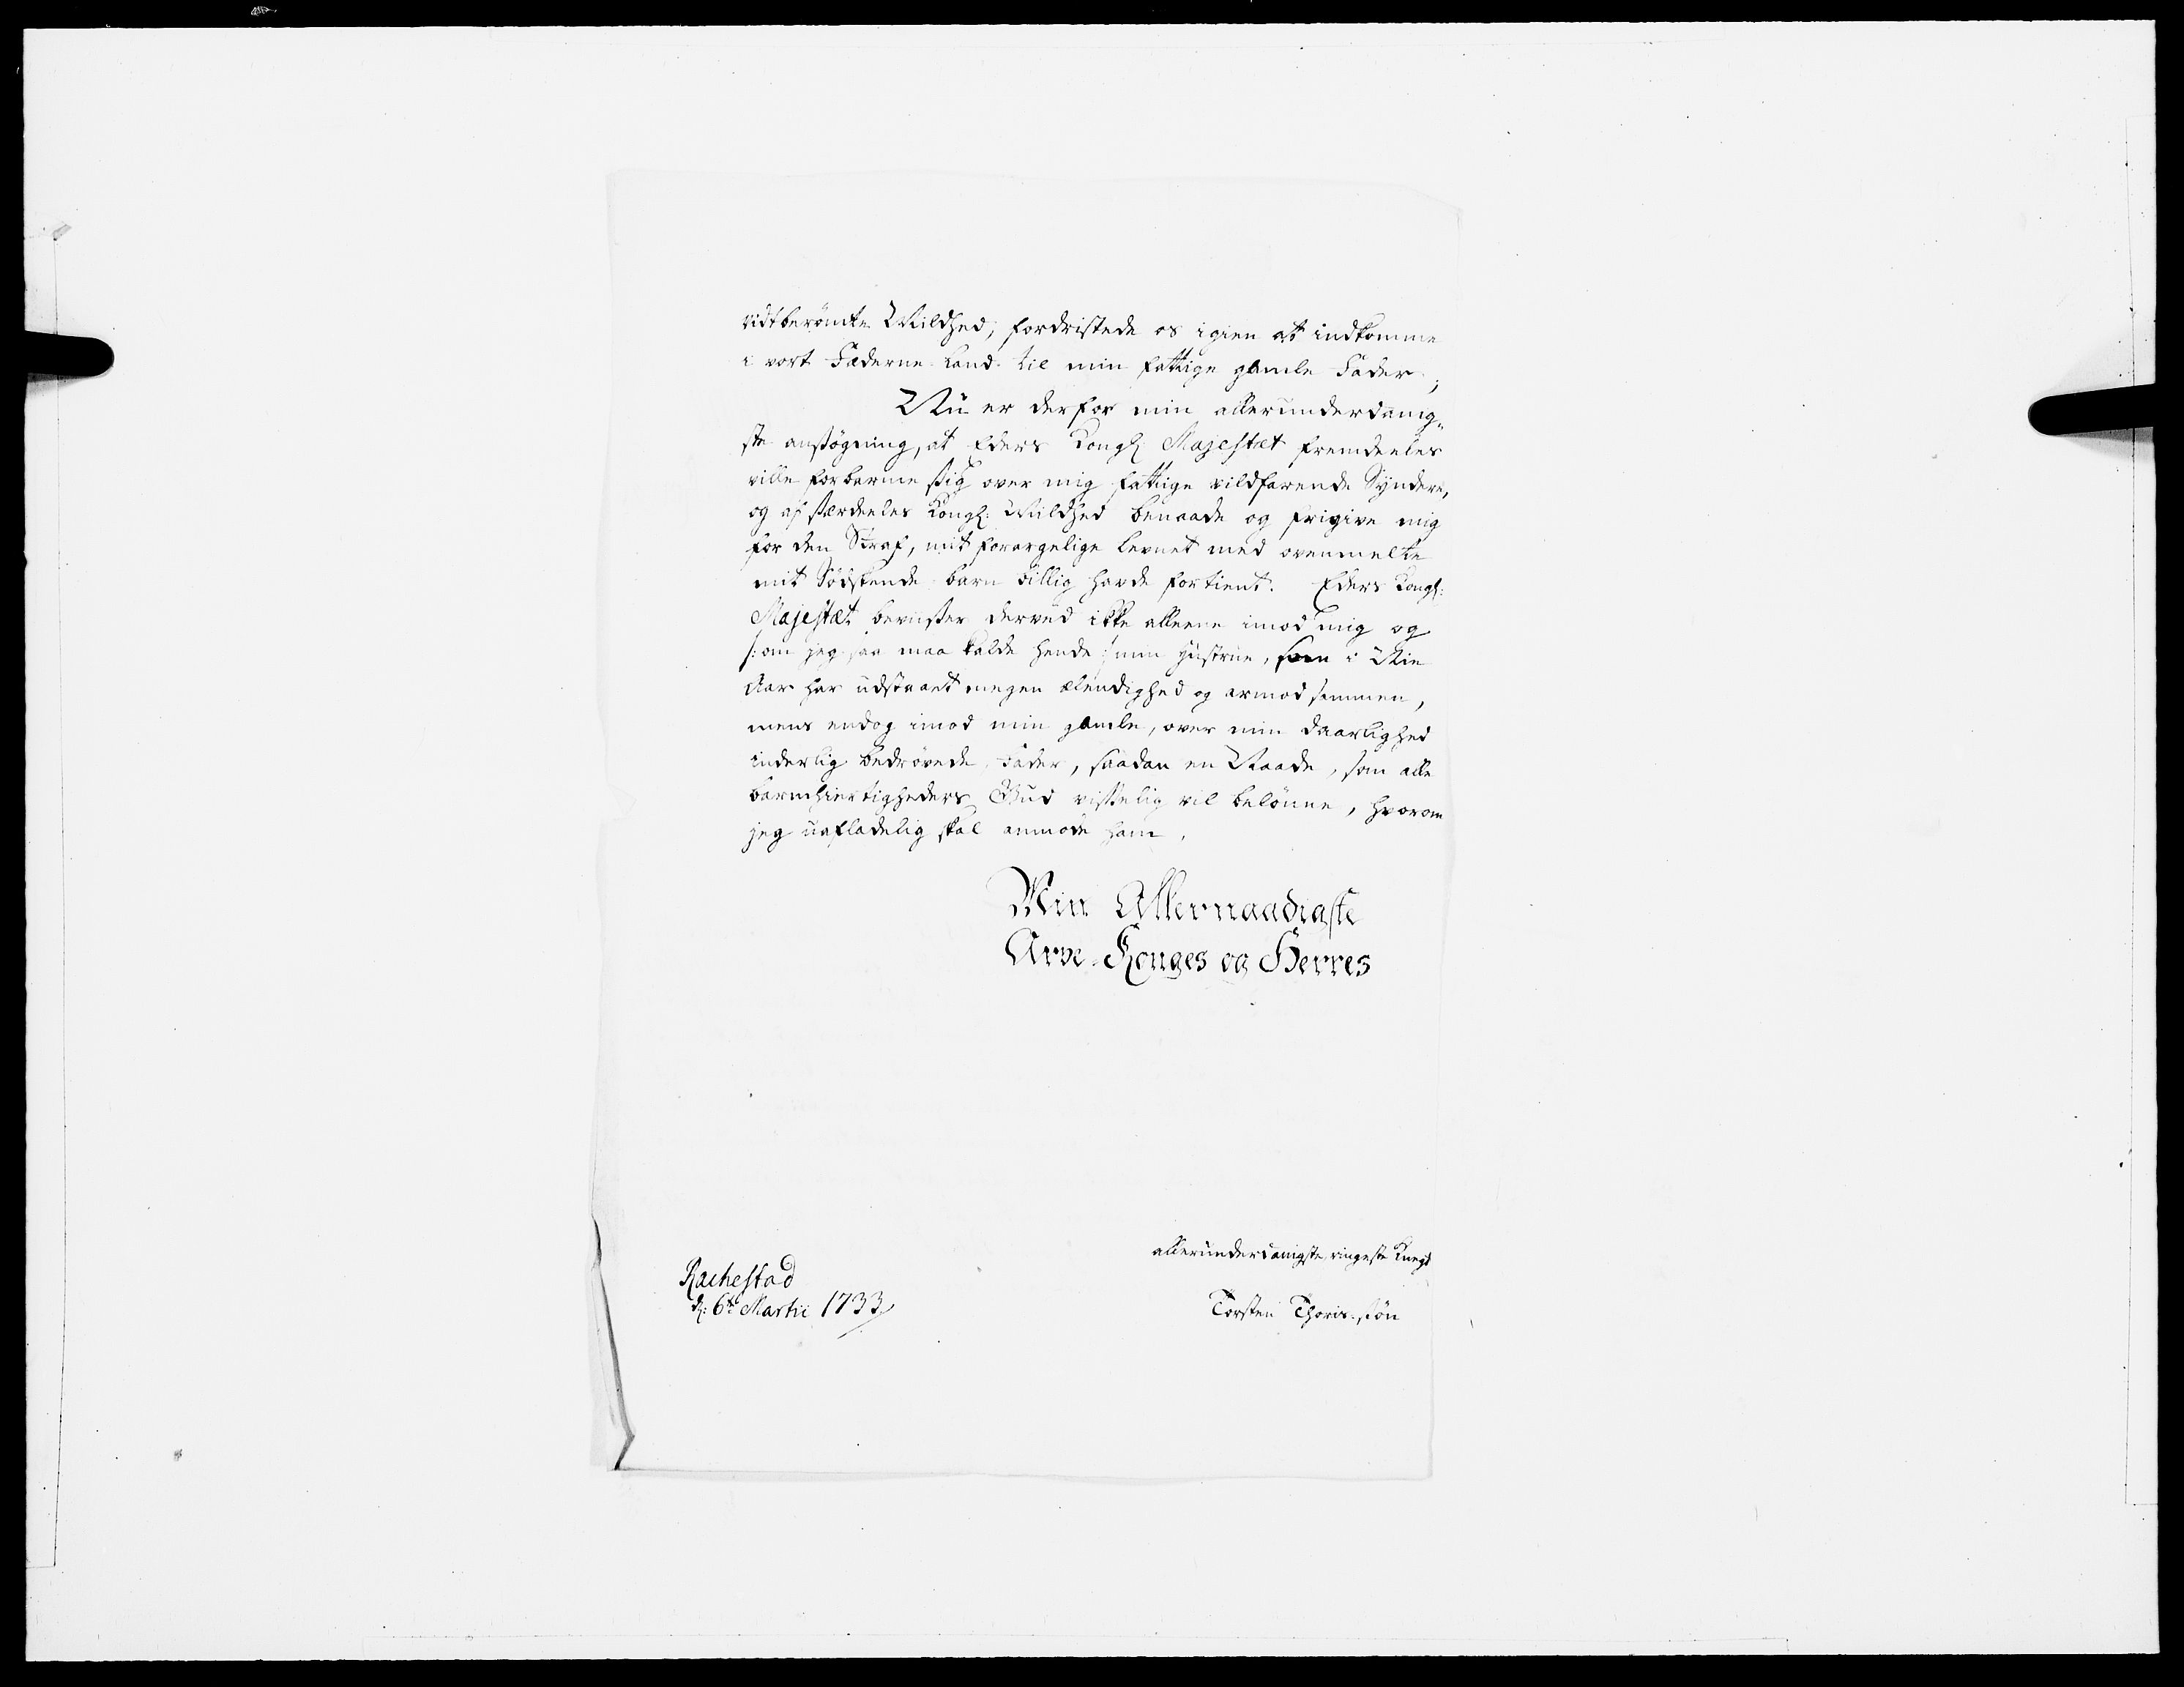 vidtberömte Mildhed, fordristede os igien at indkomme
i vort Fæderne Land til min fattige gamle Fader;
Nu er derfor min allerunderdanig„
ste ansögning, at Eders Kongl: Majestæt fremdeeles
ville forbarme sig over mig fattige vildfarende Syndere,
og af særdeeles Kongl: Mildhed benaade og frigive mig
for den Straf, mit forargelige levnet med ovenmelte
mit Södskende barn billig havde fortient. Eders Kongl:
Majestæt beviser derved ikke alleene imod mig og
/:om jeg saa maa kalde hende:/ min Hustrue, som i Nie
Aar har udstaaet megen elendighed og armod sammen,
mens endog imod min gamle, over min daarlighed
inderlig bedrövede Fader, saadan en Naade, som alle
barmhiertigheders Gud visselig vil belönne, hvorom
jeg uafladelig skal anmode ham.
Min Allernaadigste
Arve-Konges og Herres
allerunderdanigste ringeste Knegt
Rachestad
d: 6te Martii 1733
Torsten Thoris-sön